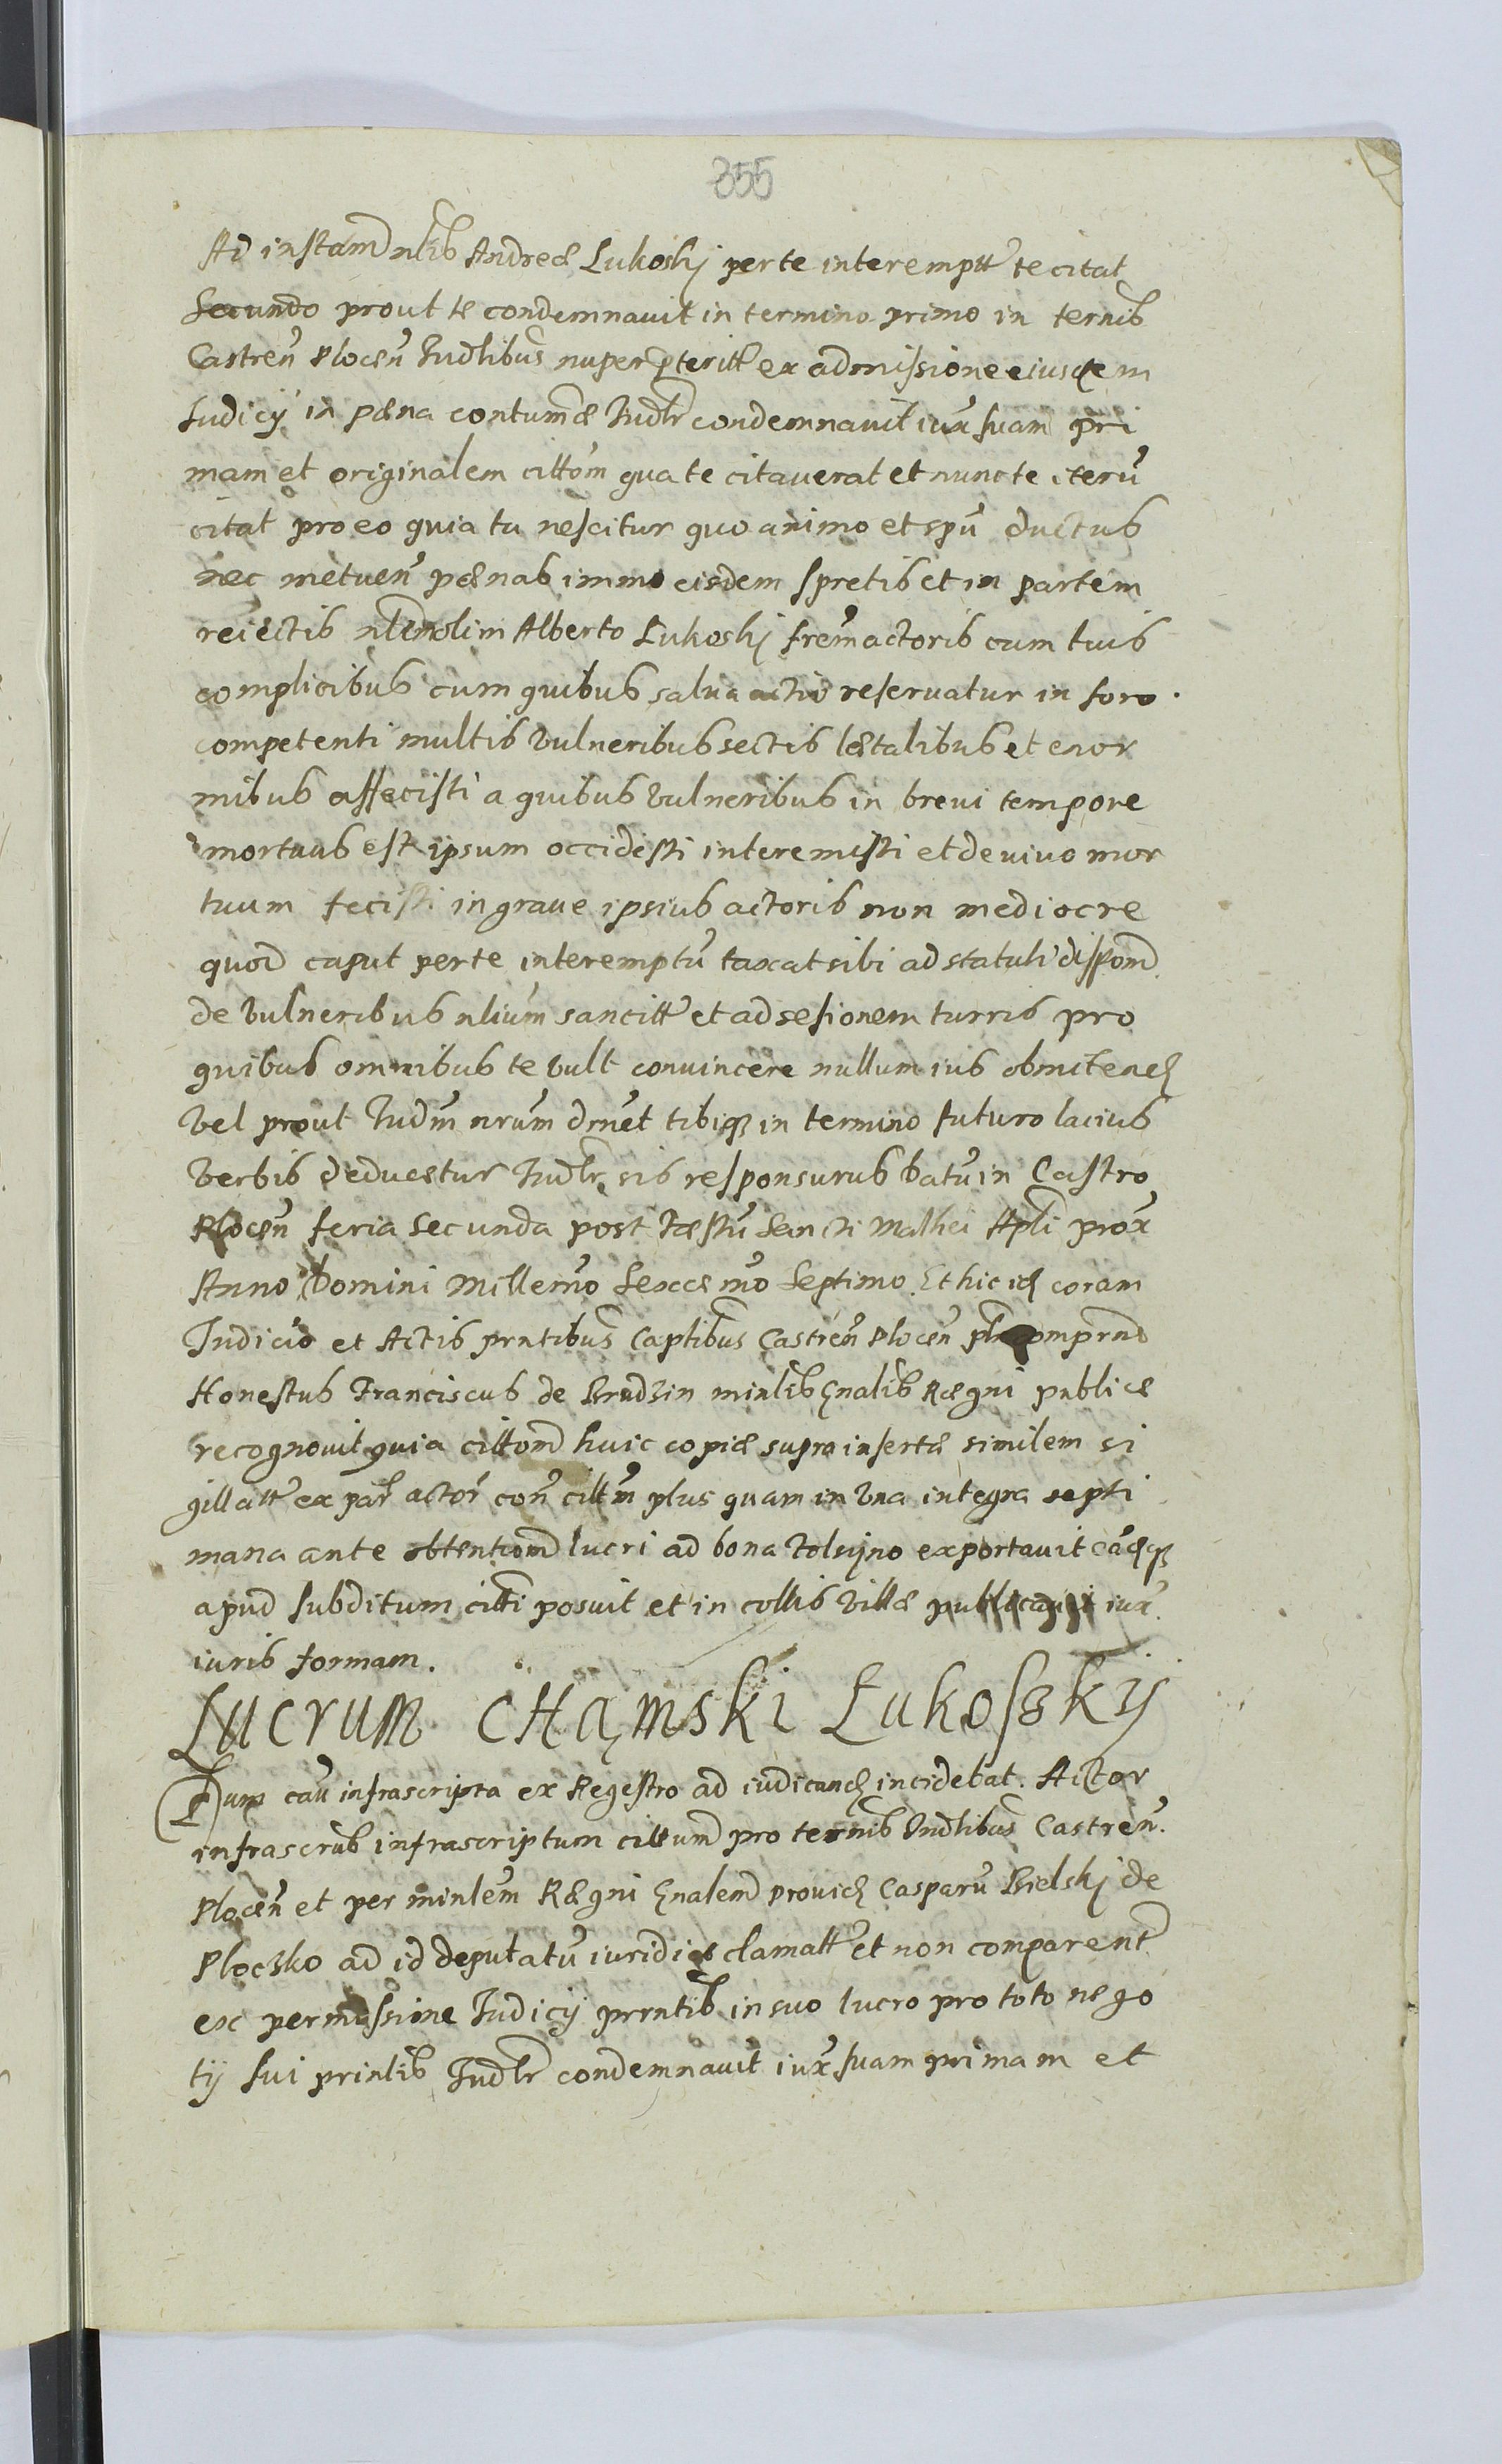 355
Ad instam nlis Andreæ Lukoskj per te interemptt te citat
Secundo prout te condemnavit in termino primo in ternis
Castren Plocen Iudlibus nuper pteritt ex admissione eiusdem
Iudicij in pæna contumæ Iudlr condemnavit iux suam pri
mam et originalem cittom qua te citaverat et nunc te iteru
citat pro eo quia tu nescitur quo animo et spu ductus
nec metuen pænas immo eisdem spretis et in partem
reiectis nlem olim Alberto Lukoskj frem actoris cum tuis
complicibus cum quibus salva actio reservatur in foro.
competenti multis vulneribus sectis lætalibus et enor
mibus affecisti a quibus vulneribus in brevi tempore
mortuus est ipsum occidisti interemisti et de vivo mor
tuum fecisti in grave ipsius actoris non mediocre
quod caput per te interemptu taxat sibi ad statuti dispom
de vulneribus nlium sancitt et ad sesionem turris pro
quibus omnibus te vult convincere nullum ius obmitten
vel prout Iudm nrum drnet tibiq in termino futuro lacius
verbis deducetur Iudlr sis responsurus Datu in Castro
Plocen feria secunda post Fæstu Sancti Mathei Apli prox
Anno Domini Millemo Sexcemo Septimo. Et hic id coram
Iudicio et Actis prntibus Captibus Castren Plocen plr comprnd
Honestus Franciscus de Brudzin minlis Gnalis Rægni publice
recognovit quia cittom huic copiæ supra insertæ similem si
gillatt ex par actor con cittm plus quam in vna integra septi
mana ante obtentiom lucri ad bona Tolsijno exportavit eaq
apud subditum citti posuit et in collis villæ publicavit iux
iuris formam.
Lucrum CHąmski Łukoszkij
Dum cau infrascripta ex Regestro ad iudicand incidebat. Actor
infrascrus infrascriptum cittum pro ternis Iudlibus Castren.
Plocen et per minlem Rægni Gnalem provid Casparu Bielskj de
Plocsko ad id deputatu iuridice clamatt et non comparent
ex permissine Iudicij prntis in suo lucro pro toto nego
tij sui prinlis Iudlr condemnavit iux suam primam et